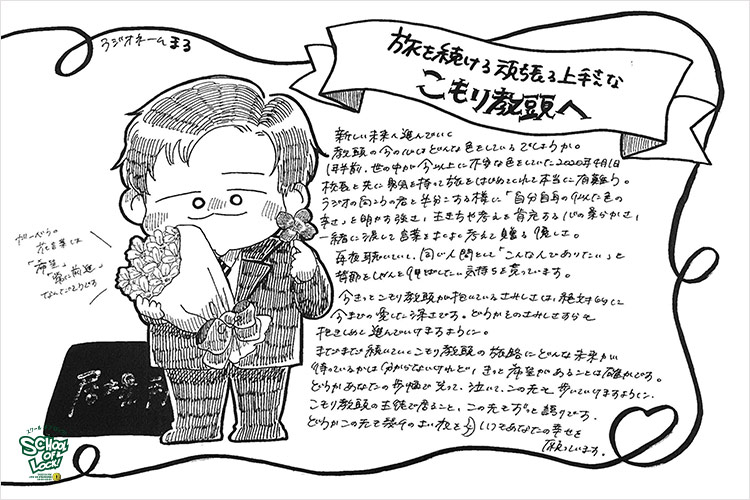 ラジオネーム まる
旅を続ける頑張る上手な
こもり教頭へ
新しい未来へ進んでいく
教頭の今の心はどんな色をしているでしょうか。
1年半前、世の中が今以上に不安な色をしていた2020年4月1日
校長と共に勇気を持って旅をはじめてくれて本当に有難う。
ラジオの向こうの君と半分こする様に「自分自身の似た色の
幸せ」を明かす強さ、生きちや考えを肯定する心の豊かさ、
一緒に涙して言葉をまじまじ考え贈る優しさ。
毎夜聴いていて、同じ人間として「こんな人でありたい」と
背筋をしゃんと伸ばしたい気持ちを貰っています。
今きっとこもり教頭が抱いているさみしさは、絶対的に
今までの愛した深さです。どうかそのさみしさすらも
抱きしめて進んでいけますように。
まだまだ続いていくこもり教頭の旅路にどんな未来が
待っているかは分からないけれど、きっと希望があることは確かです。
どうかあなたの歩幅で笑って、泣いて、この先を歩いていけますように。
こもり教頭の生徒で居ること、この先もずっと誇りです。
どうかこの先も あなたの幸せを
願っています。
ガーベラの
花言葉は
「希望」
「常に前進」
なんだそうです
SCHOOL
OF
LOCK!